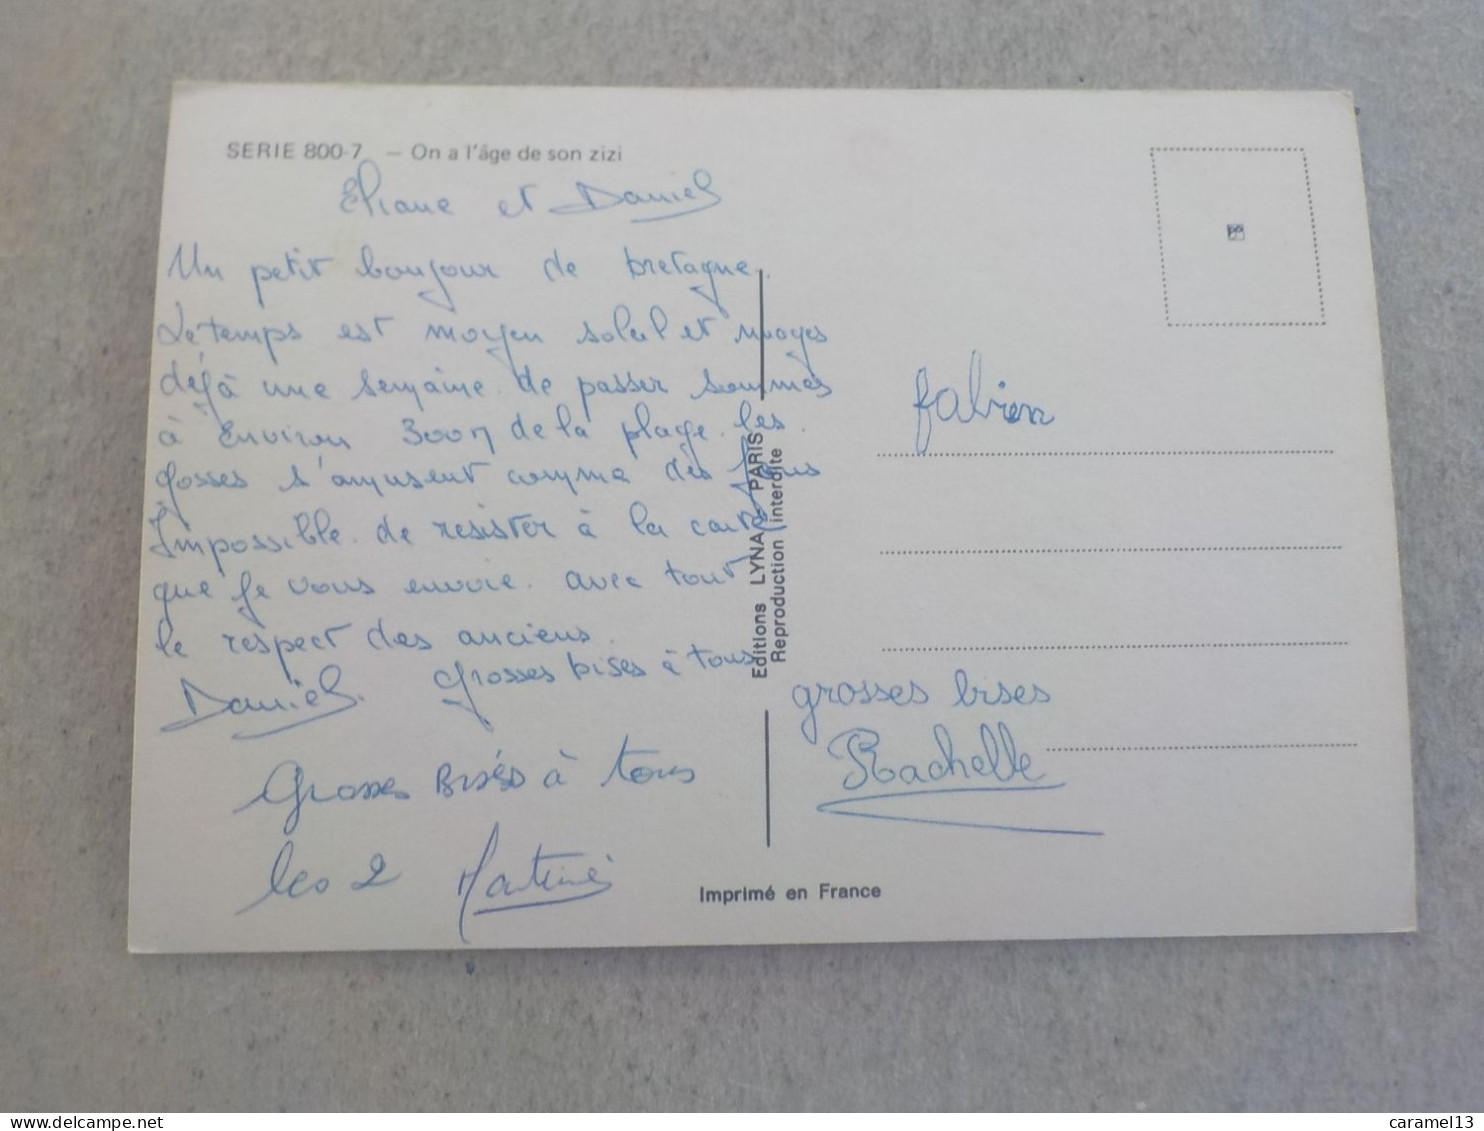 SERIE 800-7 — On a l'âge de son zizi
Eliane et Daniel
Un petit bonjour de bretagne.
Le temps est moyen soleil et nuages
déjà une semaine de passer sommes
à Environ 300m de la plage. les
gosses s'amusent comme des fous
Impossible de resister à la carte
que je vous envoie. avec tout
le respect des anciens.
Daniel. Grosses bises à tous
Grosses Bises à tous
les 2 Martine
Editions LYNA - PARIS
Reproduction interdite
fabien
grosses bises
Rachelle
Imprimé en France
caramel13